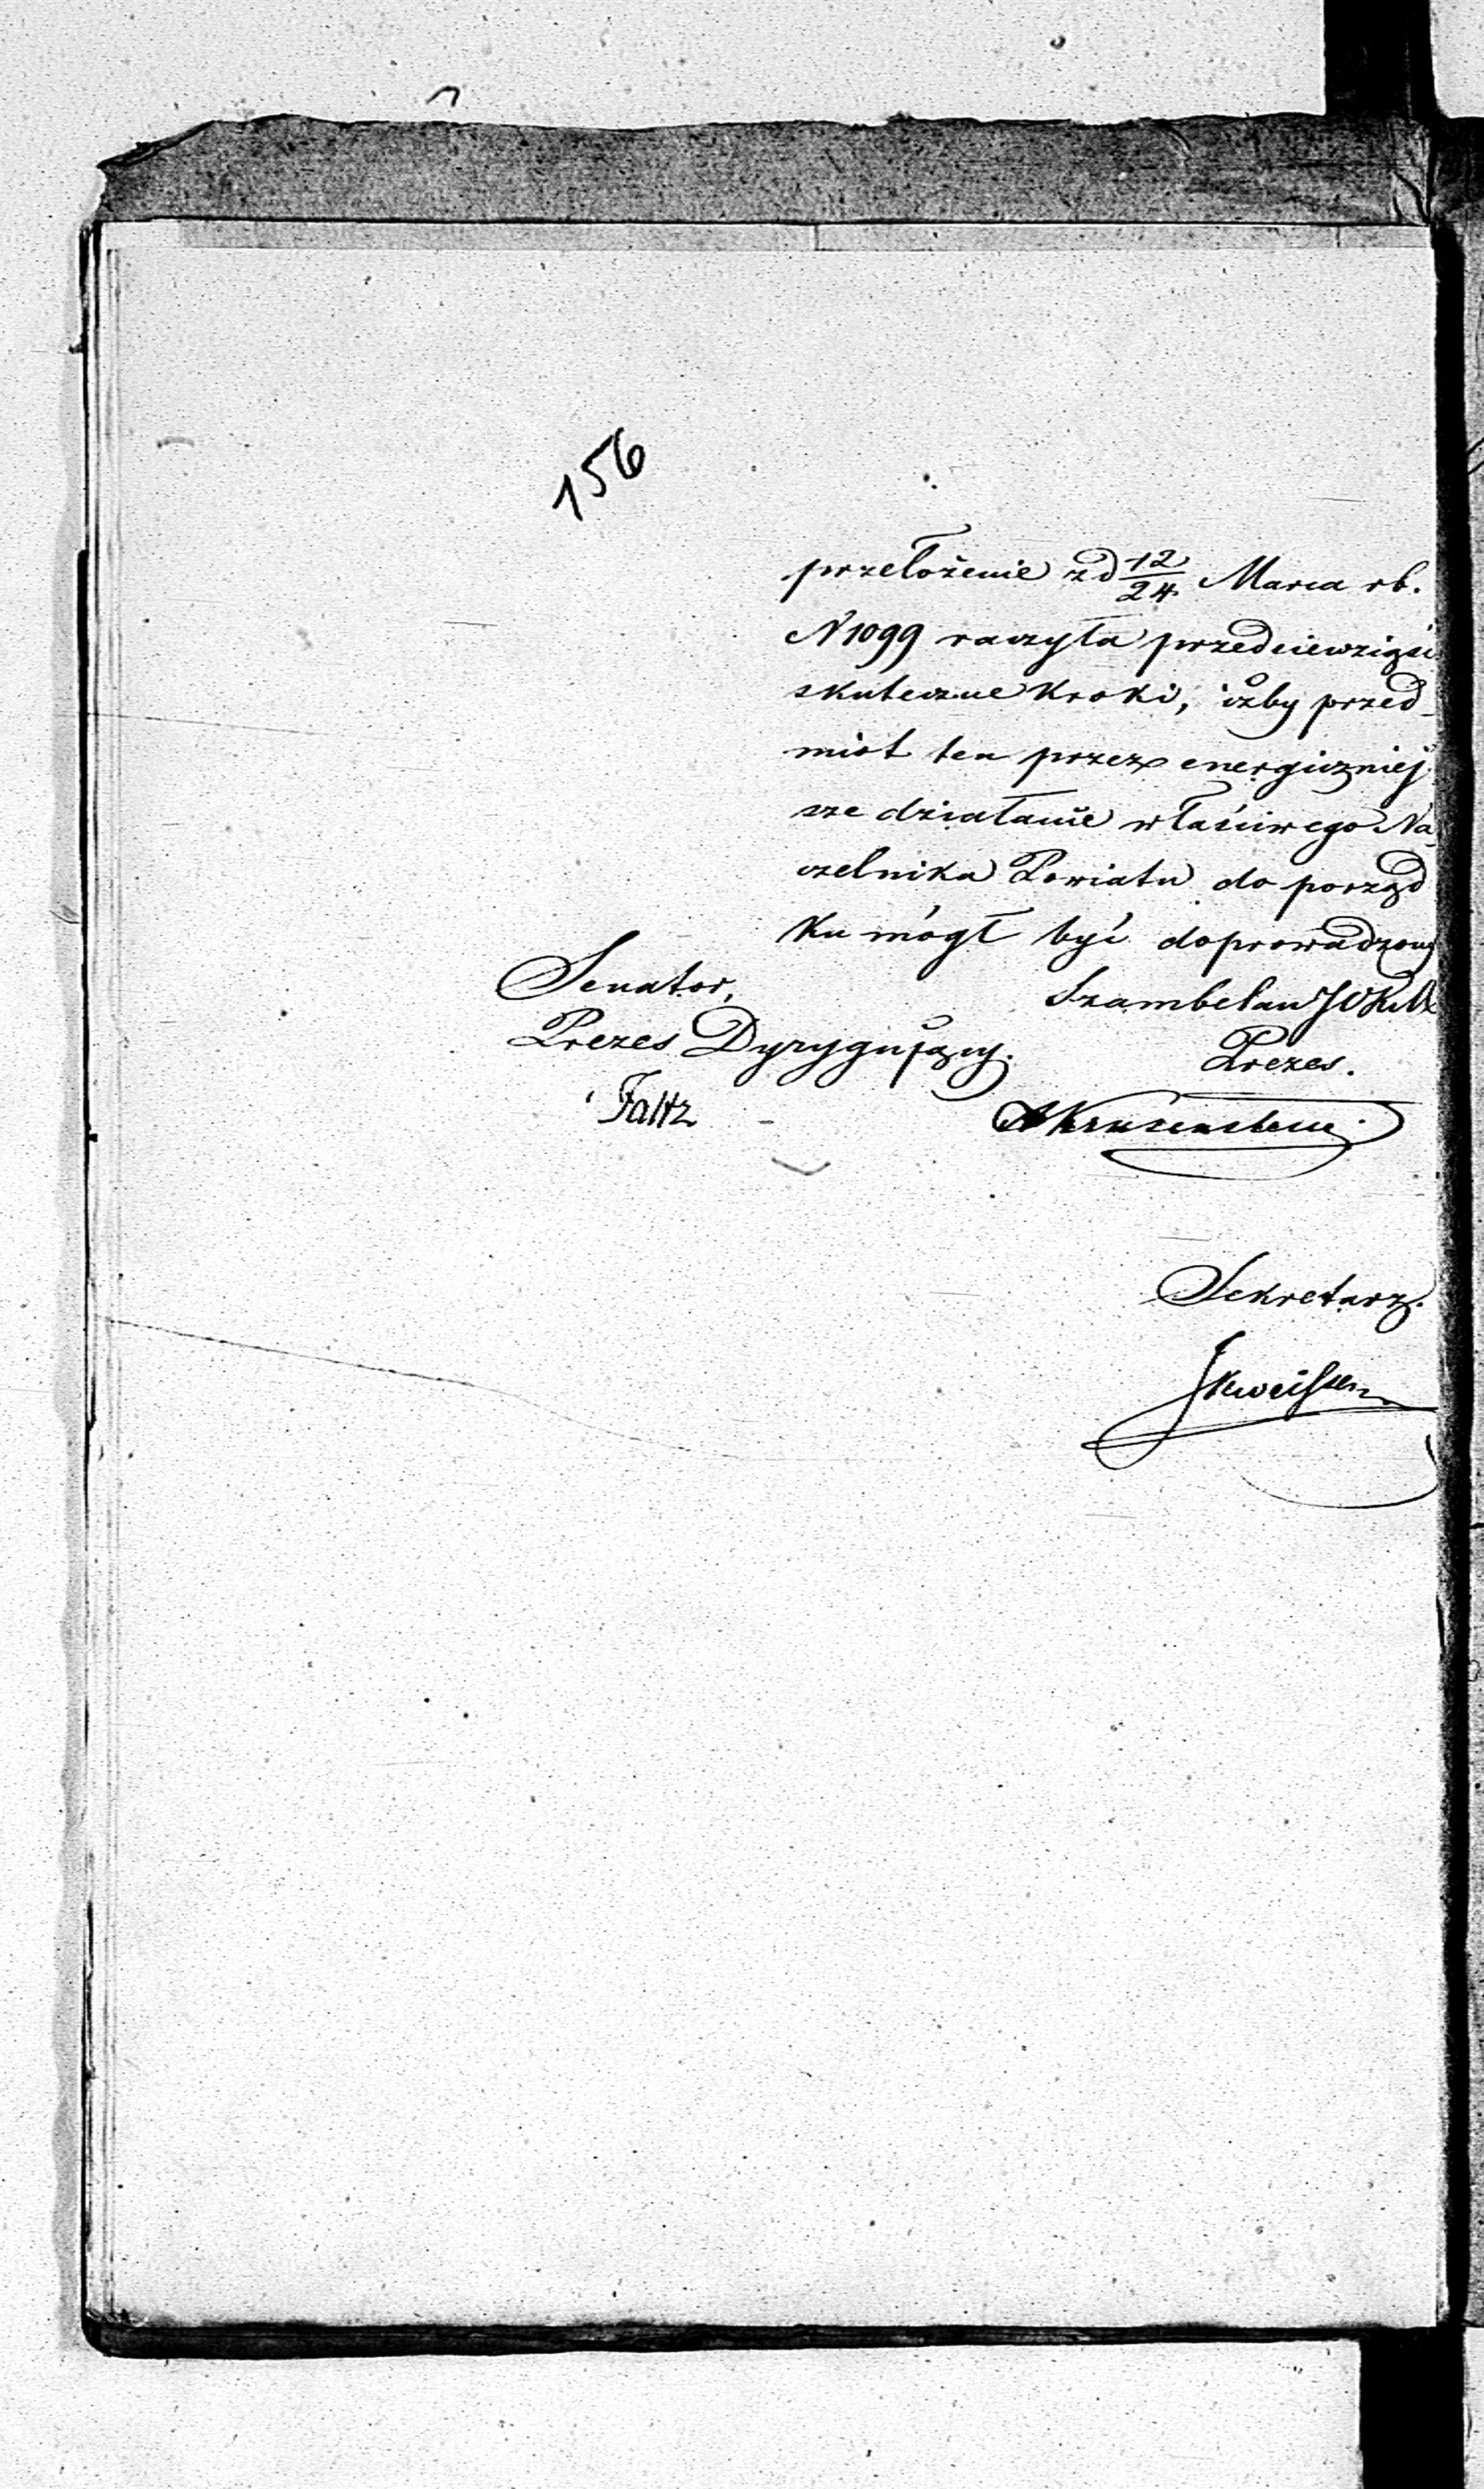 156
przełożenie z d 12/24 Marca rb.
N 1099 raczyła przedsiewziąść
skuteczne kroki, iżby przed-
miot ten przez energiczniej
sze działanie właściwego Na-
czelnika Powiatu do porząd
ku mógł być doprowadzony
Senator,
Prezes Dyrygujący.
Faltz
Szambelan
Prezes.
AKrusenstern
Sekretarz.